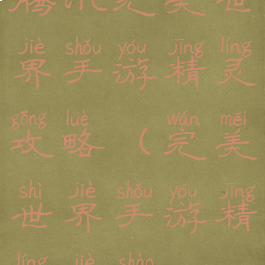 完美世
jiè shǒu yóu jīng líng
界手游精灵
gōng lüè wán měi
攻略(完美
shì jiè shǒu yóu jīng
世界手游精
líng jiè shào